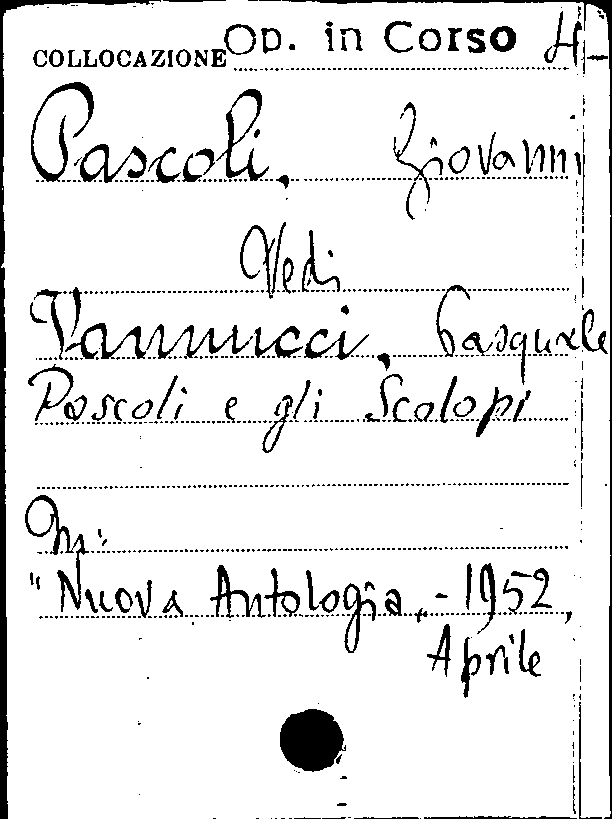 COLLOCAZIONE Op. in Corso 4
Pascoli, Giovanni
Vedi
Vannucci, Pasquale
Pascoli e gli Scolopi
In:
"Nuova Antologia„ - 1952,
Aprile